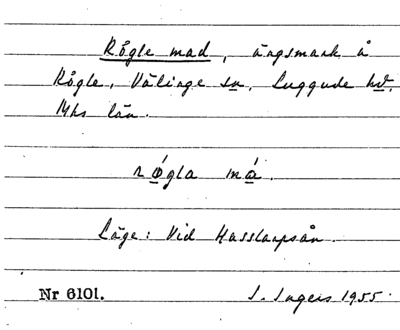 Rögle mad, ängsmark å
Rögle, Välinge sn, Luggude hd,
Mhs län.
rǿgla má.
Läge: Vid Hasslarpsån.
Nr 6101. I. Ingers 1955.